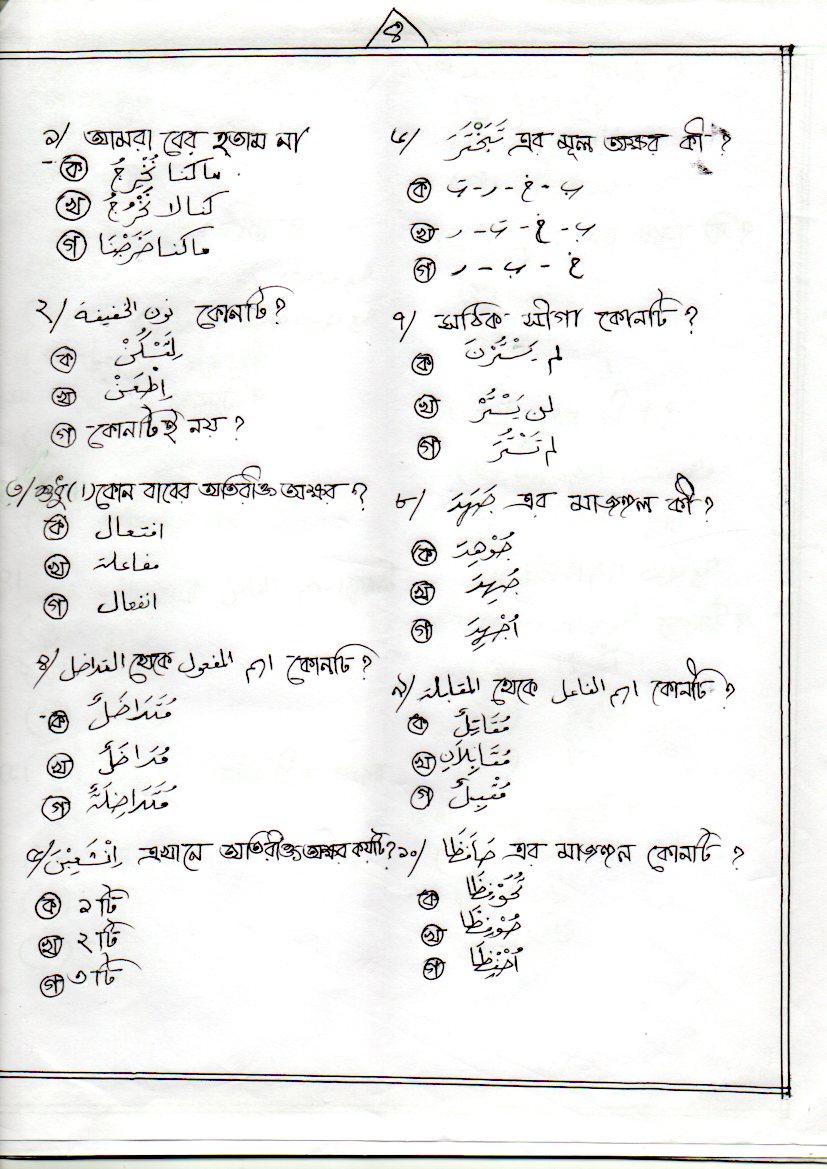 ৪
১/ আমরা বের হতাম না
ক ما كنا نُخْرِجُ
খ كنا لا نَخْرُجُ
গ ما كنا خَرَجْنَا
২/ نون الخفيفة কোনটি?
ক
খ
গ কোনটিই নয়?
৩/ শুধু (ا) কোন বাবের অতিরিক্ত অক্ষর?
ক افتعال
খ مفاعلة
গ انفعال
৪/ থেকে اسم المفعول কোনটি?
ক
খ
গ
৫/ এখানে অতিরিক্ত অক্ষর কয়টি?
ক ১টি
খ ২টি
গ ৩টি
৬/ تَبَخْتَرَ এর মূল অক্ষর কী?
ক ب - خ - ر - ت
খ ب - خ - ت - ر
গ خ - ب - ر
৭/ সঠিক সীগা কোনটি?
ক لم يَسْتُرْنَ
খ لن يَسْتُرْ
গ لم تَسْتُرَ
৮/ এর মাজহুল কী?
ক جُوْهِدَ
খ جُهِدَ
গ اُجْهِدَ
৯/ المقابلة থেকে اسم الفاعل কোনটি?
ক مُقَاتِلٌ
খ مُقَابِلَانِ
গ مُقْبِلٌ
১০/ حَافَظَا এর মাজহুল কোনটি?
ক
খ حُوْفِظَا
গ اُحْفِظَا